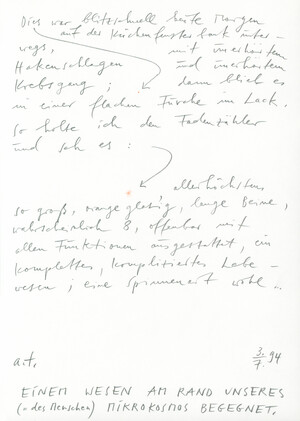 Dies war blitzschnell heute Morgen
auf der Küchenfensterbank unter-
wegs, mit unerhörten
Hakenschlagen und unerhörtem
Krebsgang; dann blieb es
in einer flachen Furche im Lack.
so holte ich den Fadenzähler
und sah es:
allerhöchstens
so groß, orange glasig, lange Beine,
wahrscheinlich 8, offenbar mit
allen Funktionen ausgestattet, ein
komplettes, kompliziertes Lebe-
wesen; eine Spinnenart wohl...
a.t. 3./7. 94
EINEM WESEN AM RAND UNSERES
(= des Menschen) MIKROKOSMOS BEGEGNET.